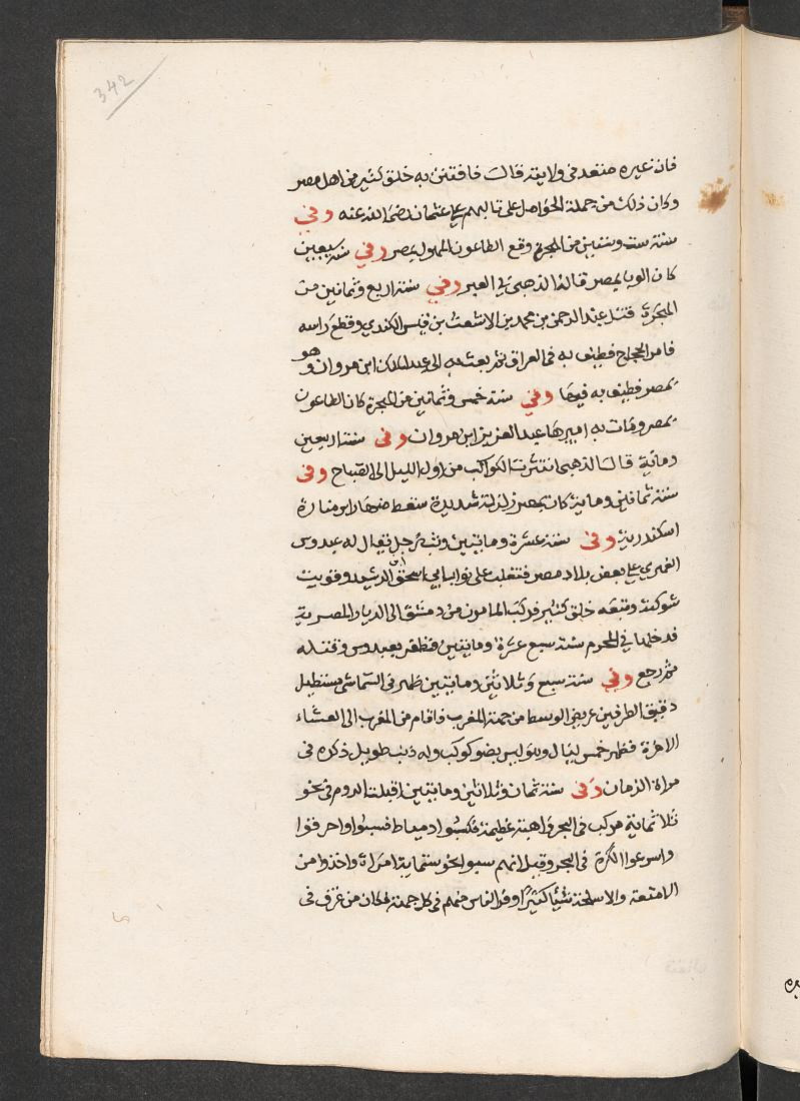 342
فان غيره متعد في ولايته قال فافتتن به خلق كثير من اهل مصر
وكان ذلك من جملة الحواصل على تالبهم على عثمان رضى الله عنه وفي
سنة ست وستين من الهجرة وقع الطاعون المهول بمصر وفي سنة سبعين
كان الوبا بمصر قاله الذهبي في العبر وفي سنة اربع وثمانين من
الهجرة قتل عبد الرحمن بن محمد بن الاشعث بن قيس الكندي وقطع راسه
فامر الحجاج فطيف به في العراق ثم بعث به الى عبد الملك ابن مروان وهو
بمصر فطيف به فيها وفي سنة خمس وثمانين من الهجرة كان الطاعون
بمصر ومات به اميرها عبد العزيز ابن مروان وفي سنة اربعين
ومائية قال الذهبي انتثرت الكواكب من اول الليل الى الصباح وفي
سنة ثمانين وماية كان بمصر زلزلة شديدة سقط منها راس منارة
اسكندرية وفي سنة عشرة ومايتين وثب رجل يقال له عبدوس
الفهري على بعض بلاد مصر فتغلب على نواب ابي اسحق ابن الرشيد وقويت
شوكته وتبعه خلق كثير فركب المامون من دمشق الى الديار المصرية
فدخلها في المحرم سنة سبع عشرة ومايتين فظفر بعبدوس وقتله
ثم رجع وفي سنة سبع وثلاثين ومايتين ظهر في السما شى مستطيل
دقيق الطرفين عريض الوسط من جهة المغرب فاقام من المغرب الى العشاء
الاخرة فظهر خمس ليال وليس بضو كوكب وله ذنب طويل ذكره في
مراة الزمان وفي سنة ثمان وثلاثين ومايتين اقبلت الروم في نحو
ثلاثماية مركب في البحر في اهبة عظيمة فكبسوا دمياط فسبوا واحرقوا
واسرعوا الكرة في البحر وقيل انهم سبوا نحو ستماية امراة واخذوا من
الامتعة والاسلحة شيئا كثيرا وفر الناس منهم في كل جهة فكان من غرق في